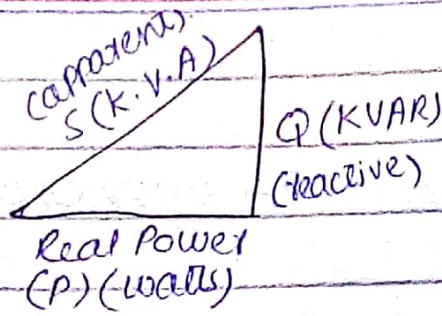 (apparent)
S (K.V.A)
Q (KVAR)
(reactive)
Real Power
(P) (watts)